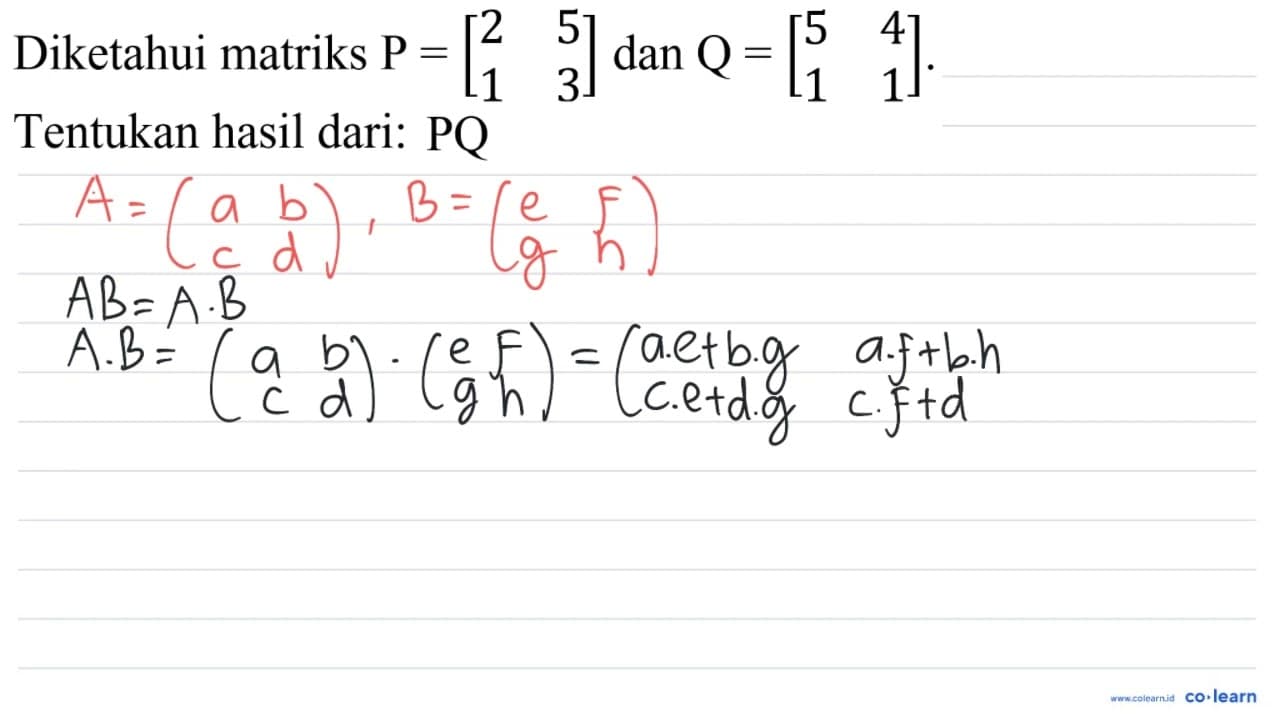 Diketahui matriks P = [2 5 1 3] dan Q = [5 4 1 1].
Tentukan hasil dari: PQ
A = (a b c d), B = (e f g h)
AB = A.B
A.B = (a b c d) . (e f g h) = (a.e+b.g a.f+b.h c.e+d.g c.f+d
www.colearn.id co·learn